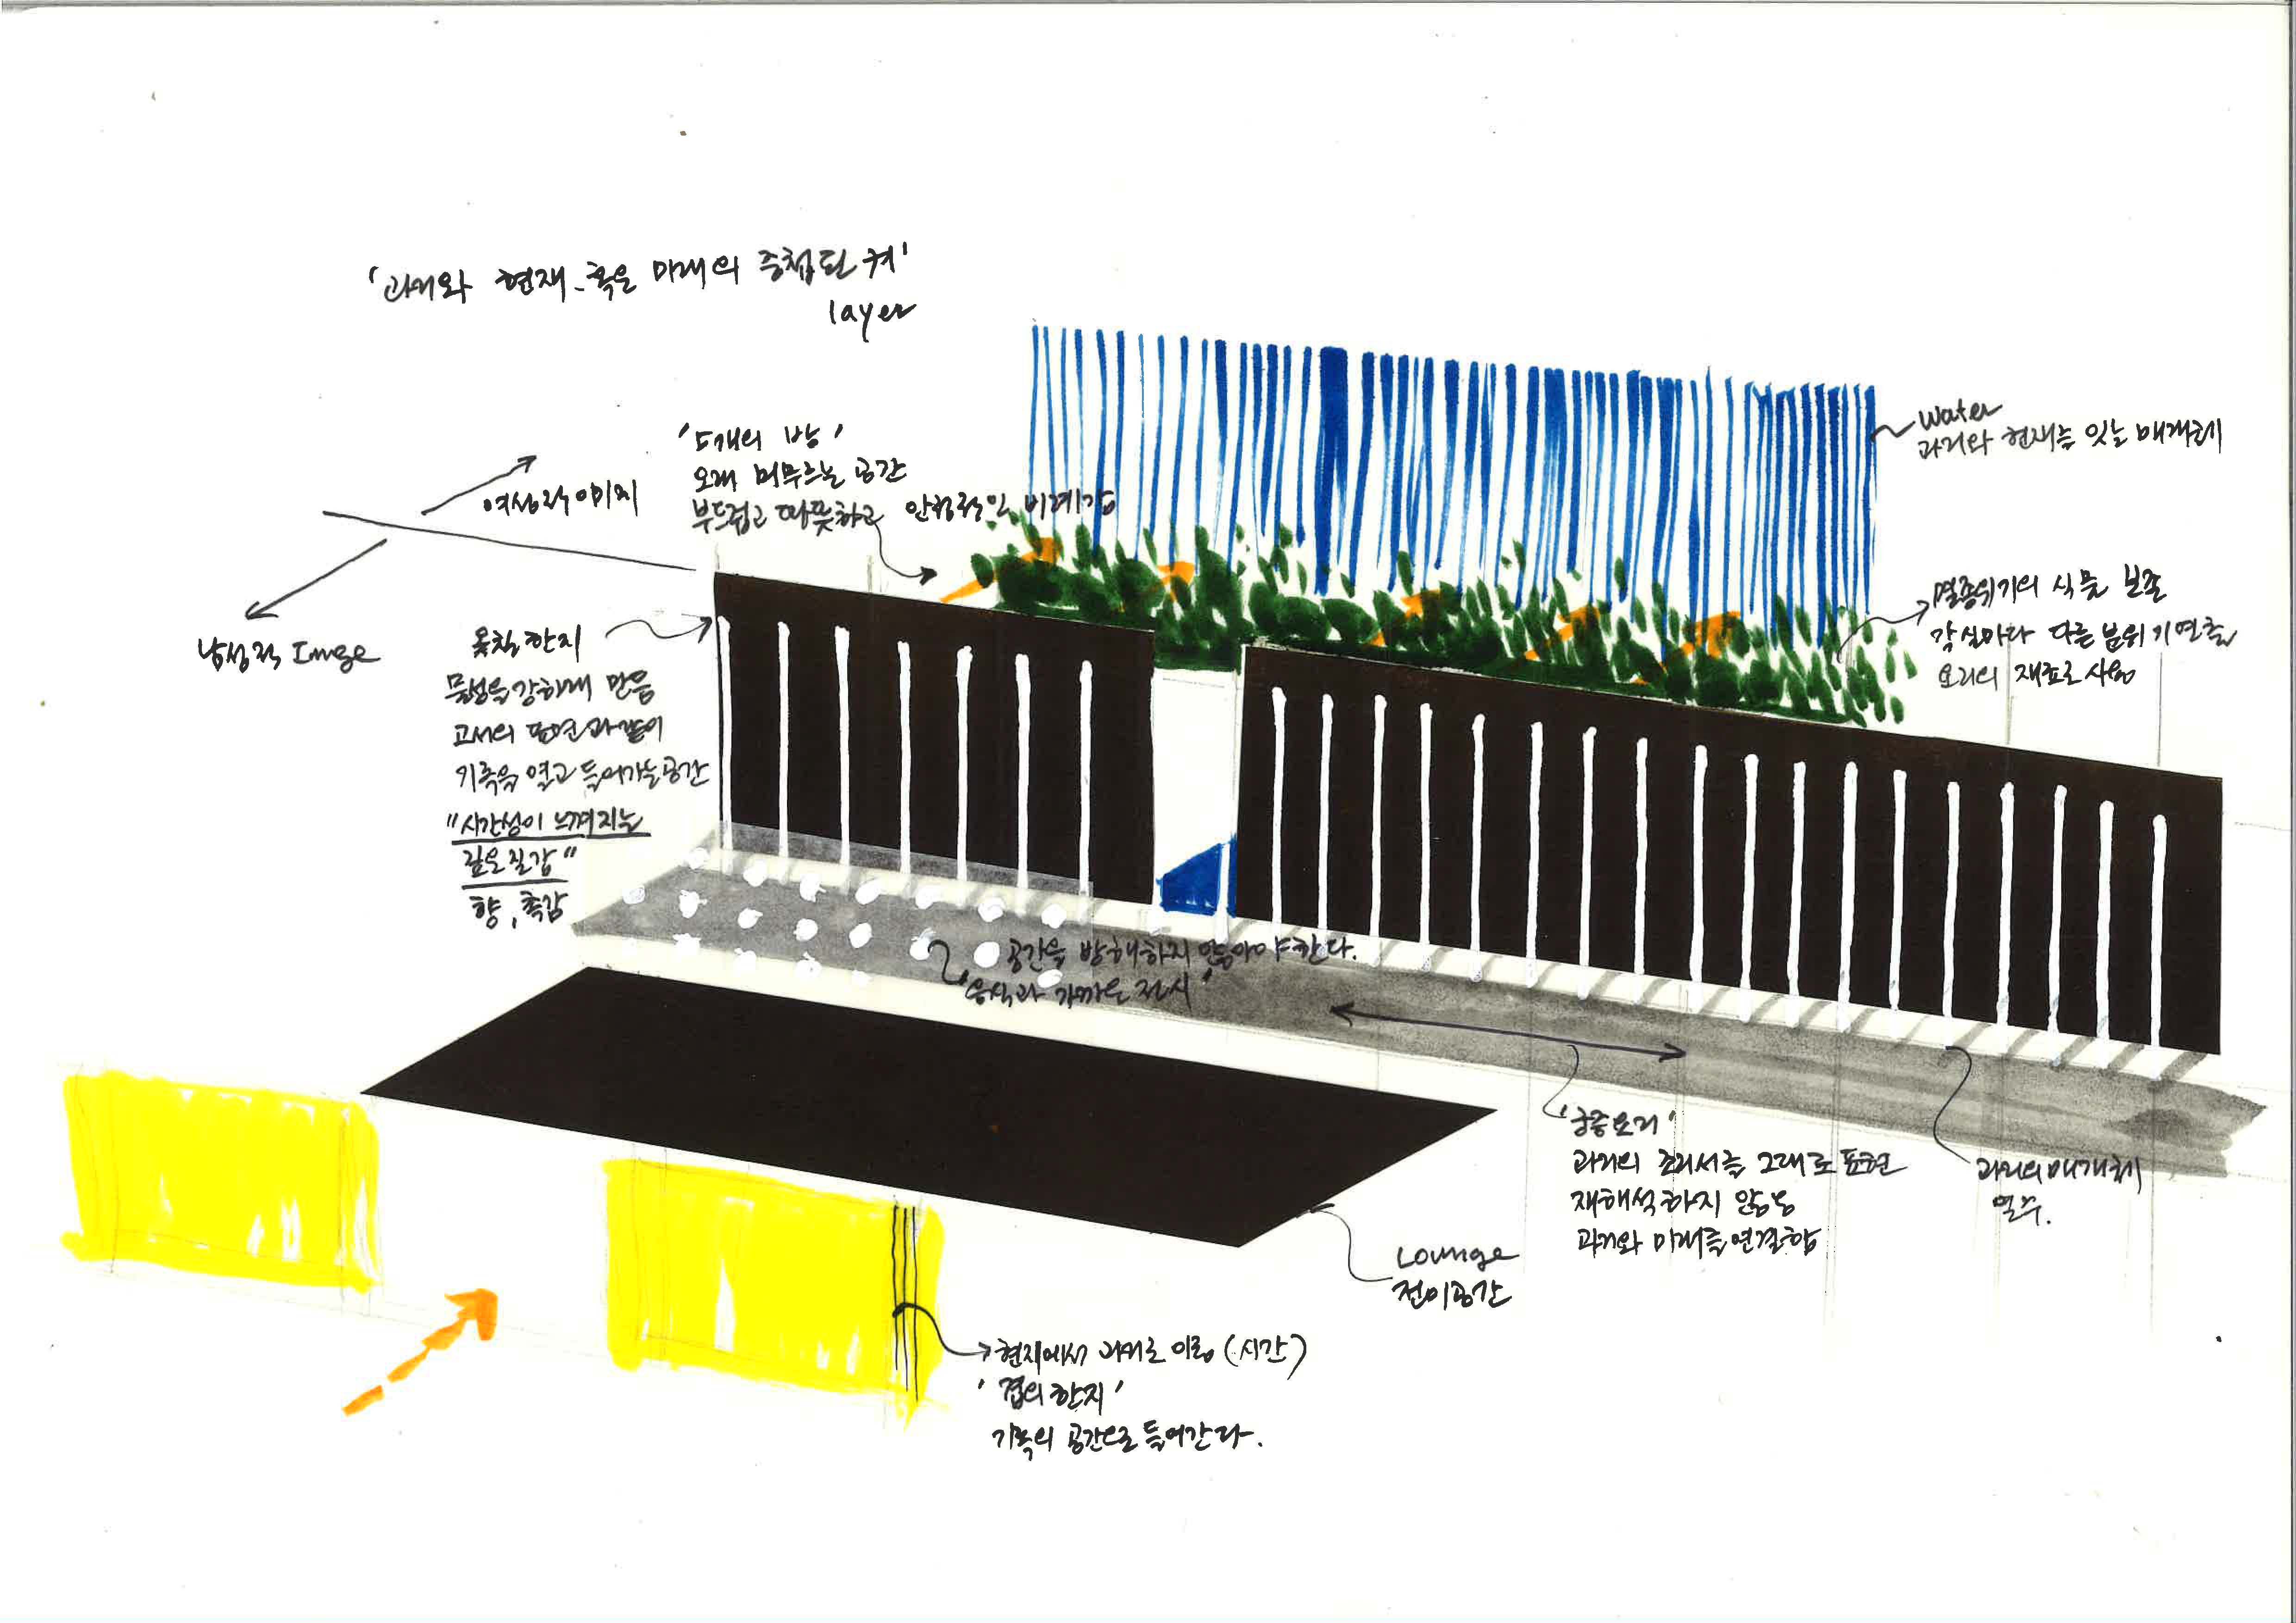 '과거와 현재. 혹은 미래의 중첩된 켜'
layer
'5개의 방'
오래 머무르는 공간
부드럽고 따뜻하고 안정적인 비례감
여성적 이미지
남성적 Image
Water
과거와 현재를 잇는 매개체
멸종위기의 식물 보존
각 실마다 다른 분위기 연출
요리의 재료로 사용
옻칠한지
물성을 강하게 만듬
고서의 표면과 같이
기록을 열고 들어가는 공간
"시간성이 느껴지는
깊은 질감"
향, 촉감
공간을 방해하지 않아야 한다.
'음식과 가까운 전시'
'궁중요리'
과거의 조리서를 그대로 표현
재해석하지 않는
과거와 미래를 연결함
과거의 매개체
열주.
Lounge
전이공간
현재에서 과거로 이동 (시간)
'겹의 한지'
기록의 공간으로 들어간다.